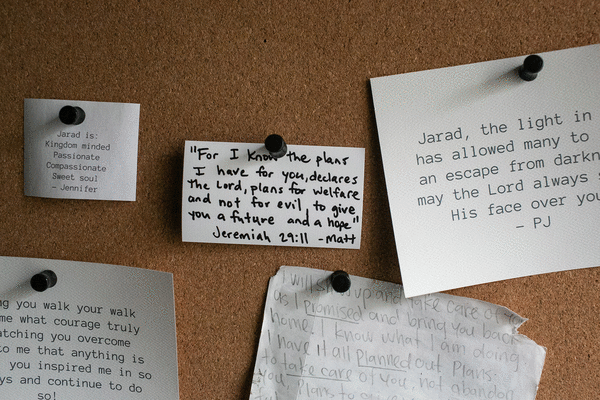 Jarad is:
Kingdom minded
Passionate
Compassionate
Sweet soul
- Jennifer
"For I know the plans
I have for you, declares
the Lord, plans for welfare
and not for evil, to give
you a future and a hope"
Jeremiah 29:11 -Matt
Jarad, the light in
has allowed many to
an escape from darkn
may the Lord always s
His face over you
- PJ
ng you walk your walk
me what courage truly
atching you overcome
to me that anything is
you inspired me in so
ys and continue to do
so!
I will show up and take care of
as I promised and bring you back
home. I know what I am doing
I have it all planned out Plans
to take care of you, not abandon
you Plans to